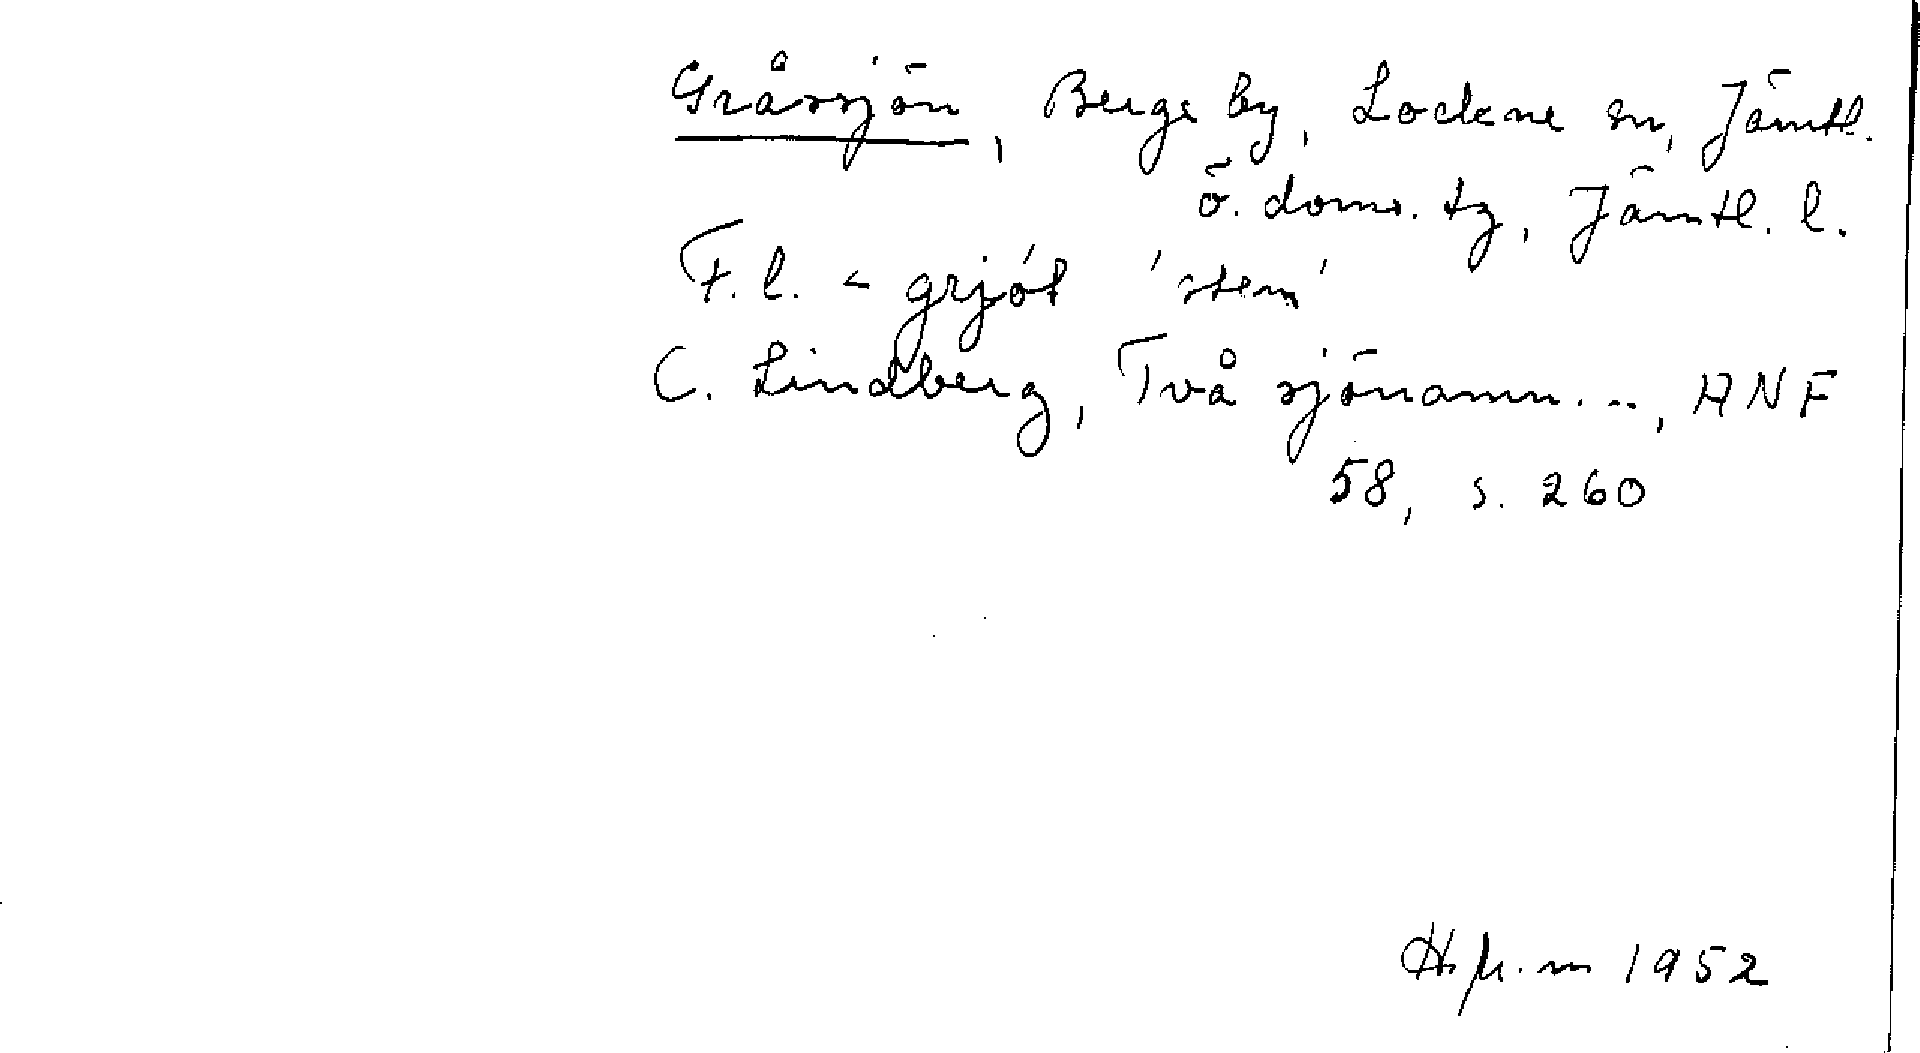 Gråssjön, Berge by, Lockne sn, Jämtl.
ö. doms. tg, Jämtl. l.
F.l. < grjót 'sten'
C. Lindberg, Två sjönamn..., ANF
58, s. 260
1952